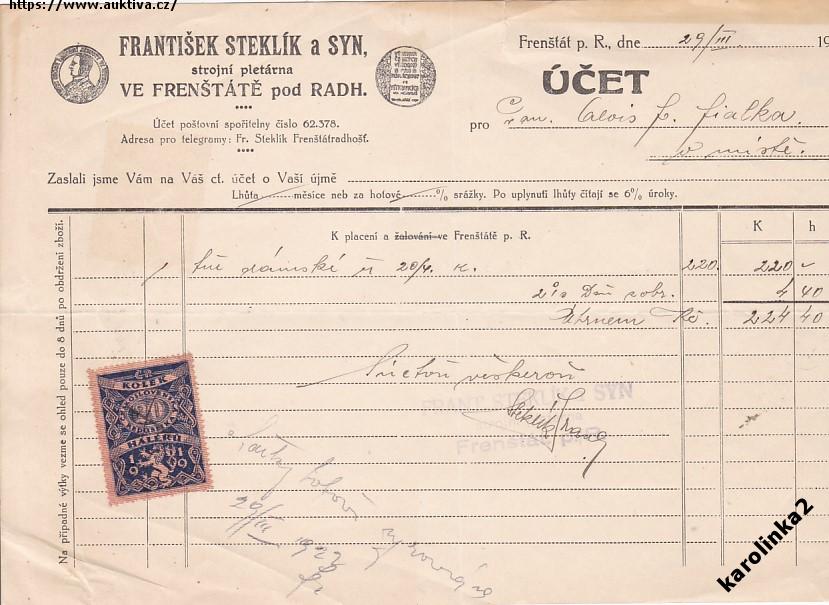 https://www.auktiva.cz/
FRANTIŠEK STEKLÍK a SYN,
strojní pletárna
VE FRENŠTÁTĚ pod RADH.
Účet poštovní spořitelny číslo 62.378.
Adresa pro telegramy: Fr. Steklík Frenštátradhošť.
Frenštát p. R., dne 29/III 19
ÚČET
pro Pan. Alois F. Fialka.
v místě.
Zaslali jsme Vám na Váš ct. účet o Vaší újmě
Lhůta měsíce neb za hotové % srážky. Po uplynutí lhůty čítají se 6% úroky.
K placení a žalování ve Frenštátě p. R.
K h
1 dámské 220. 220
2% Daň 4 40
Kč. 224 40
S úctou veškerou
FRANT. STEKLÍK A SYN
Frenštát p. R.
KOLEK
HALÉŘŮ
1919
29/III 1922
Na případné výtky vezme se ohled pouze do 8 dnů po obdržení zboží.
karolinka2